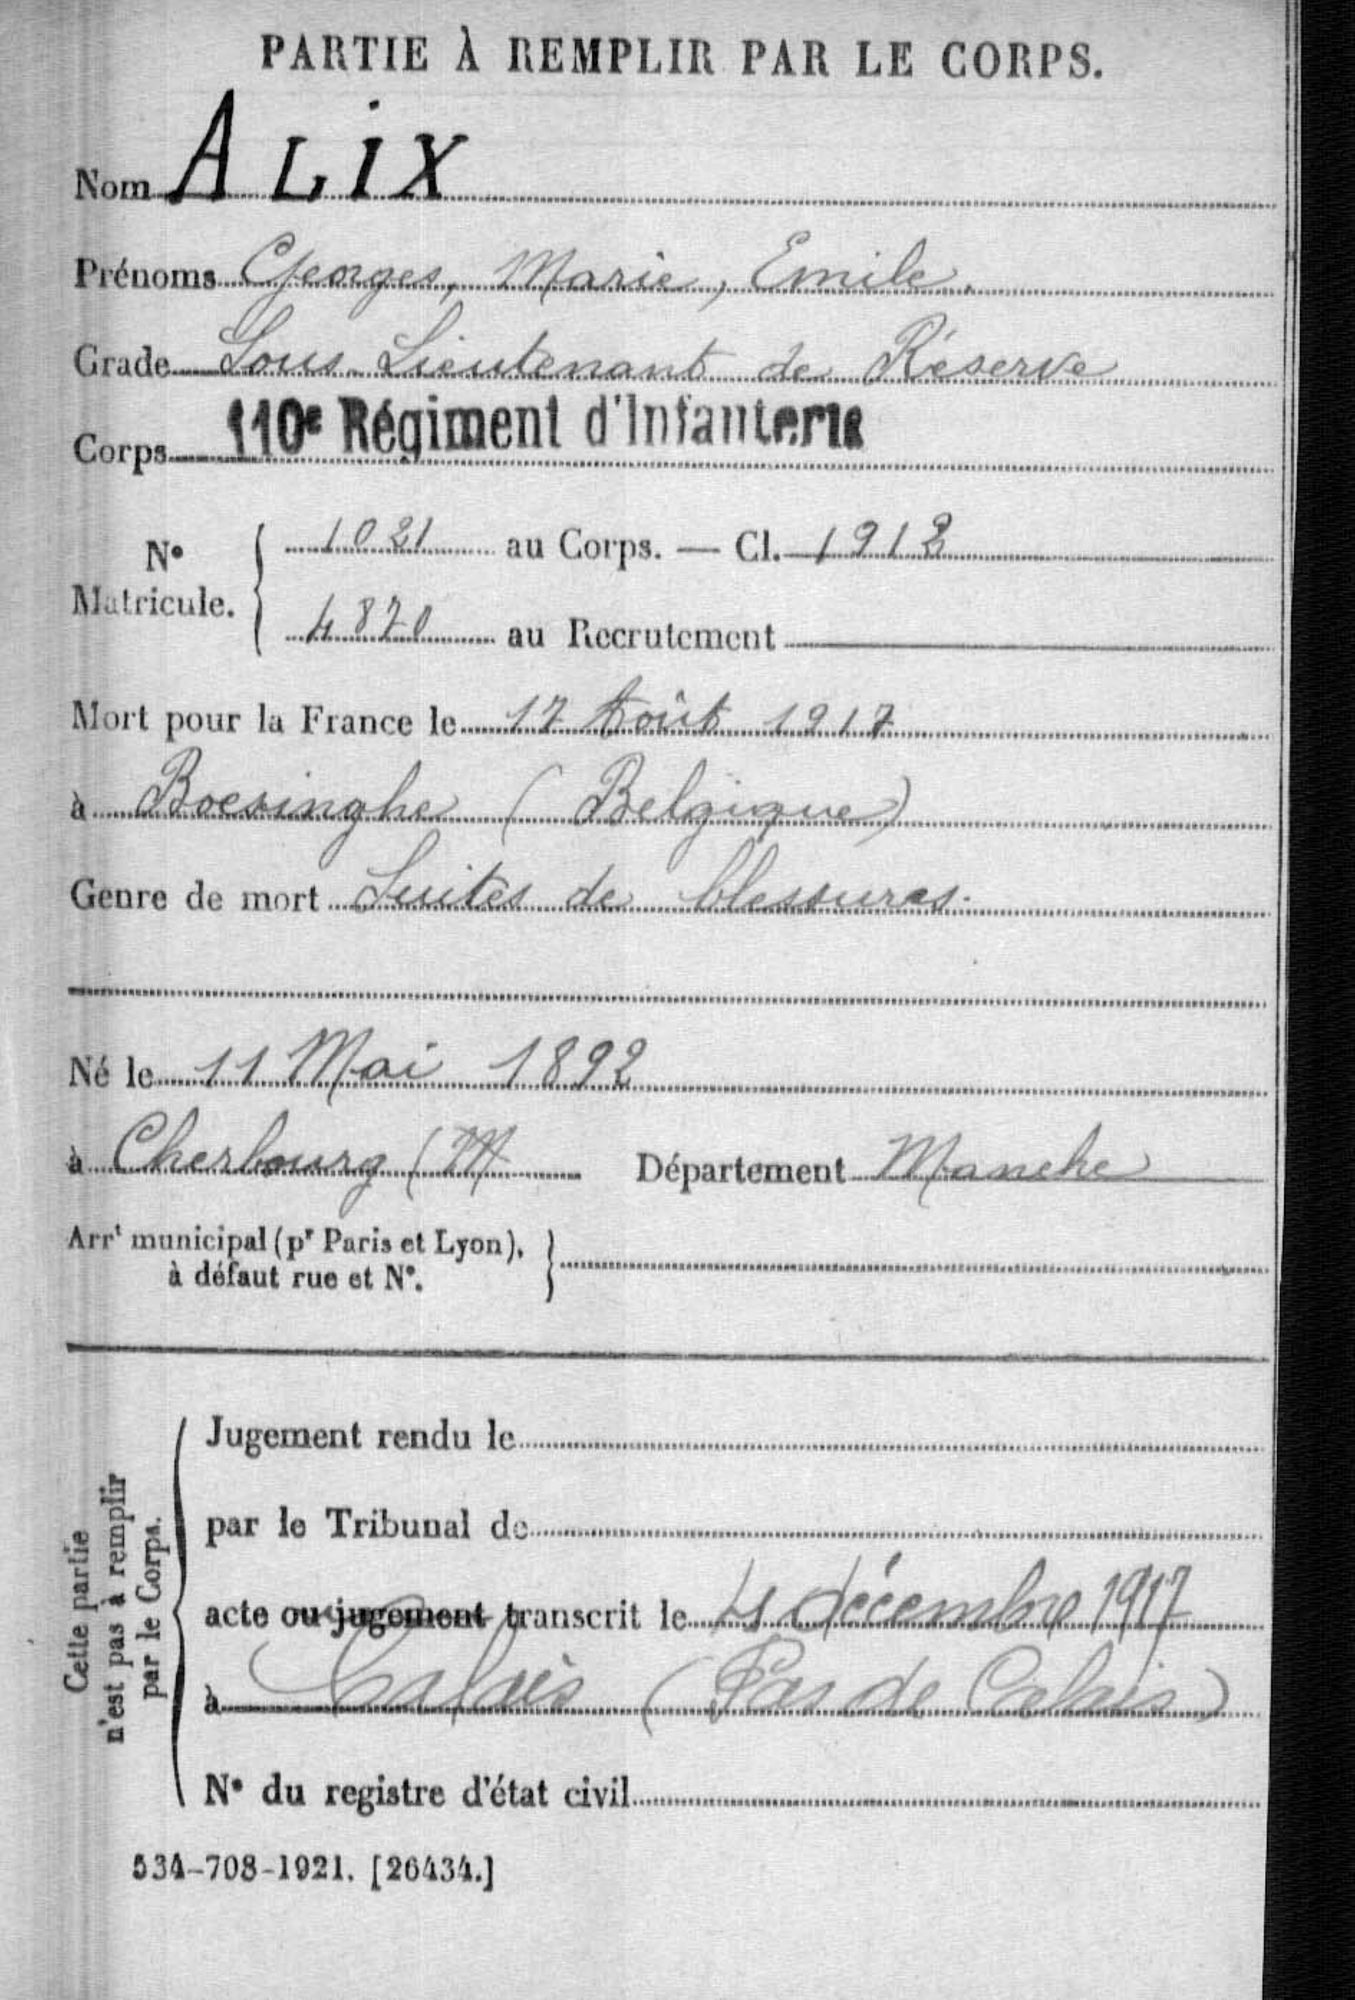 PARTIE À REMPLIR PAR LE CORPS.
Nom ALiX
Prénoms Georges, Marie, Emile.
Grade Sous-Lieutenant de Réserve
Corps 110e Régiment d'Infanterie
N° Matricule. { 1021 au Corps. — Cl. 1912
4870 au Recrutement
Mort pour la France le 17 Août 1917
à Boesinghe (Belgique)
Genre de mort Suites de blessures.
Né le 11 Mai 1892
à Cherbourg (M Département Manche
Arrt municipal (pr Paris et Lyon),
à défaut rue et N°. }
Cette partie
n'est pas à remplir
par le Corps.
Jugement rendu le
par le Tribunal de
acte ou jugement transcrit le 4 décembre 1917
à Calais (Pas de Calais)
N° du registre d'état civil
534-708-1921. [26434.]